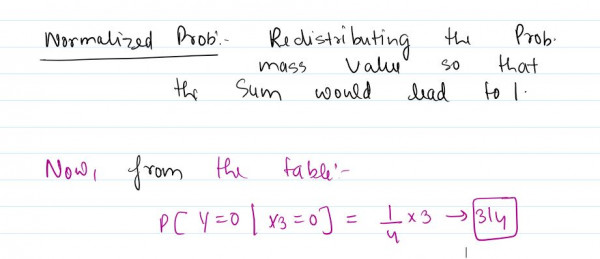 Normalized Prob:- Redistributing the Prob.
mass value so that
the sum would lead to 1.
Now, from the table:-
P[Y=0 | X3=0] = 1/4 x 3 → 3/4